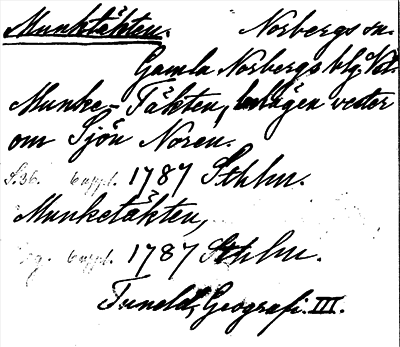 Munktäkten. Norbergs sn.
Gamla Norbergs blg. Vtl.
Munke-Täkten, belägen vester
om Sjön Noren.
S.36. 6 uppl. 1787 Sthlm.
Munketäkten,
6 uppl. 1787 Sthlm.
Tuneld, Geografi. III.